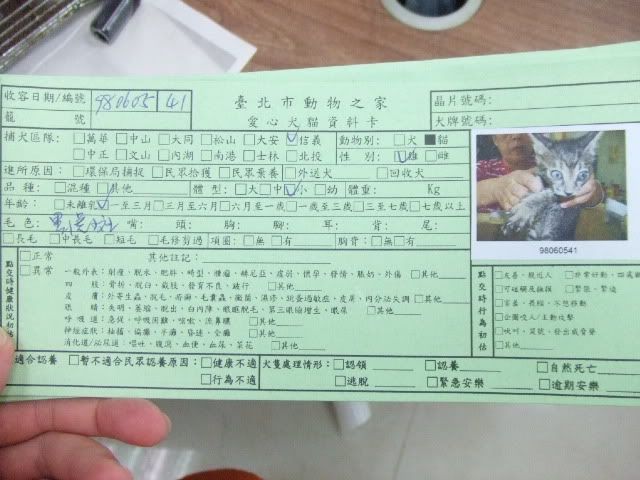 收容日期/編號 980605 41 臺北市動物之家 晶片號碼:
籠號 愛心犬貓資料卡 犬牌號碼:
捕犬區隊: □萬華 □中山 □大同 □松山 □大安 ☑信義 動物別: □犬 ■貓
□中正 □文山 □內湖 □南港 □士林 □北投 性別: ☑雄 □雌
進所原因: □環保局捕捉 □民眾拾獲 □民眾棄養 □外送犬 □回收犬
品種: □混種 □其他 體型: □大 □中 ☑小 □幼 體重: Kg
年齡: □未離乳 ☑一至三月 □三月至六月 □六月至一歲 □一歲至三歲 □三至七歲 □七歲以上
毛色: 嘴: 頭: 胸: 腳: 背: 尾:
□長毛 □中長毛 □短毛 □毛修剪過 項圈: □無 □有 胸背: □無 □有
98060541
點交時健康狀況初估
□正常 其他註記:
□異常 一般外表: 削瘦、脫水、肥胖、畸型、腫瘤、赫尼亞、虛弱、懷孕、發情、脹奶、外傷 □其他
四肢: 骨折、脫臼、截肢、發育不良、跛行 □其他
皮膚: 外寄生蟲、脫毛、疥癬、毛囊蟲、黴菌、濕疹、跳蚤過敏症、皮屑、內分泌失調 □其他
眼睛: 失明、萎縮、脫出、白內障、眼瞼脫毛、第三眼瞼增生、眼屎 □其他
呼吸道: 急促、呼吸困難、咳嗽、流鼻膿 □其他
神經症狀: 抽搐、偏癱、半癱、昏迷、全癱 □其他
消化道/泌尿道: 嘔吐、腹瀉、血便、血尿、菜花 □其他
點交時行為初估
□友善、親近人 □非常好動、四處
□可碰觸及撫摸 □緊張、緊迫
□害羞、畏縮、不想移動
□企圖咬人/主動攻擊
□吠叫、哭號、發出威脅聲
□其他
適合認養 □暫不適合民眾認養原因: □健康不適 犬隻處理情形: □認領 □認養 □自然死亡
□行為不適 □逃脫 □緊急安樂 □逾期安樂